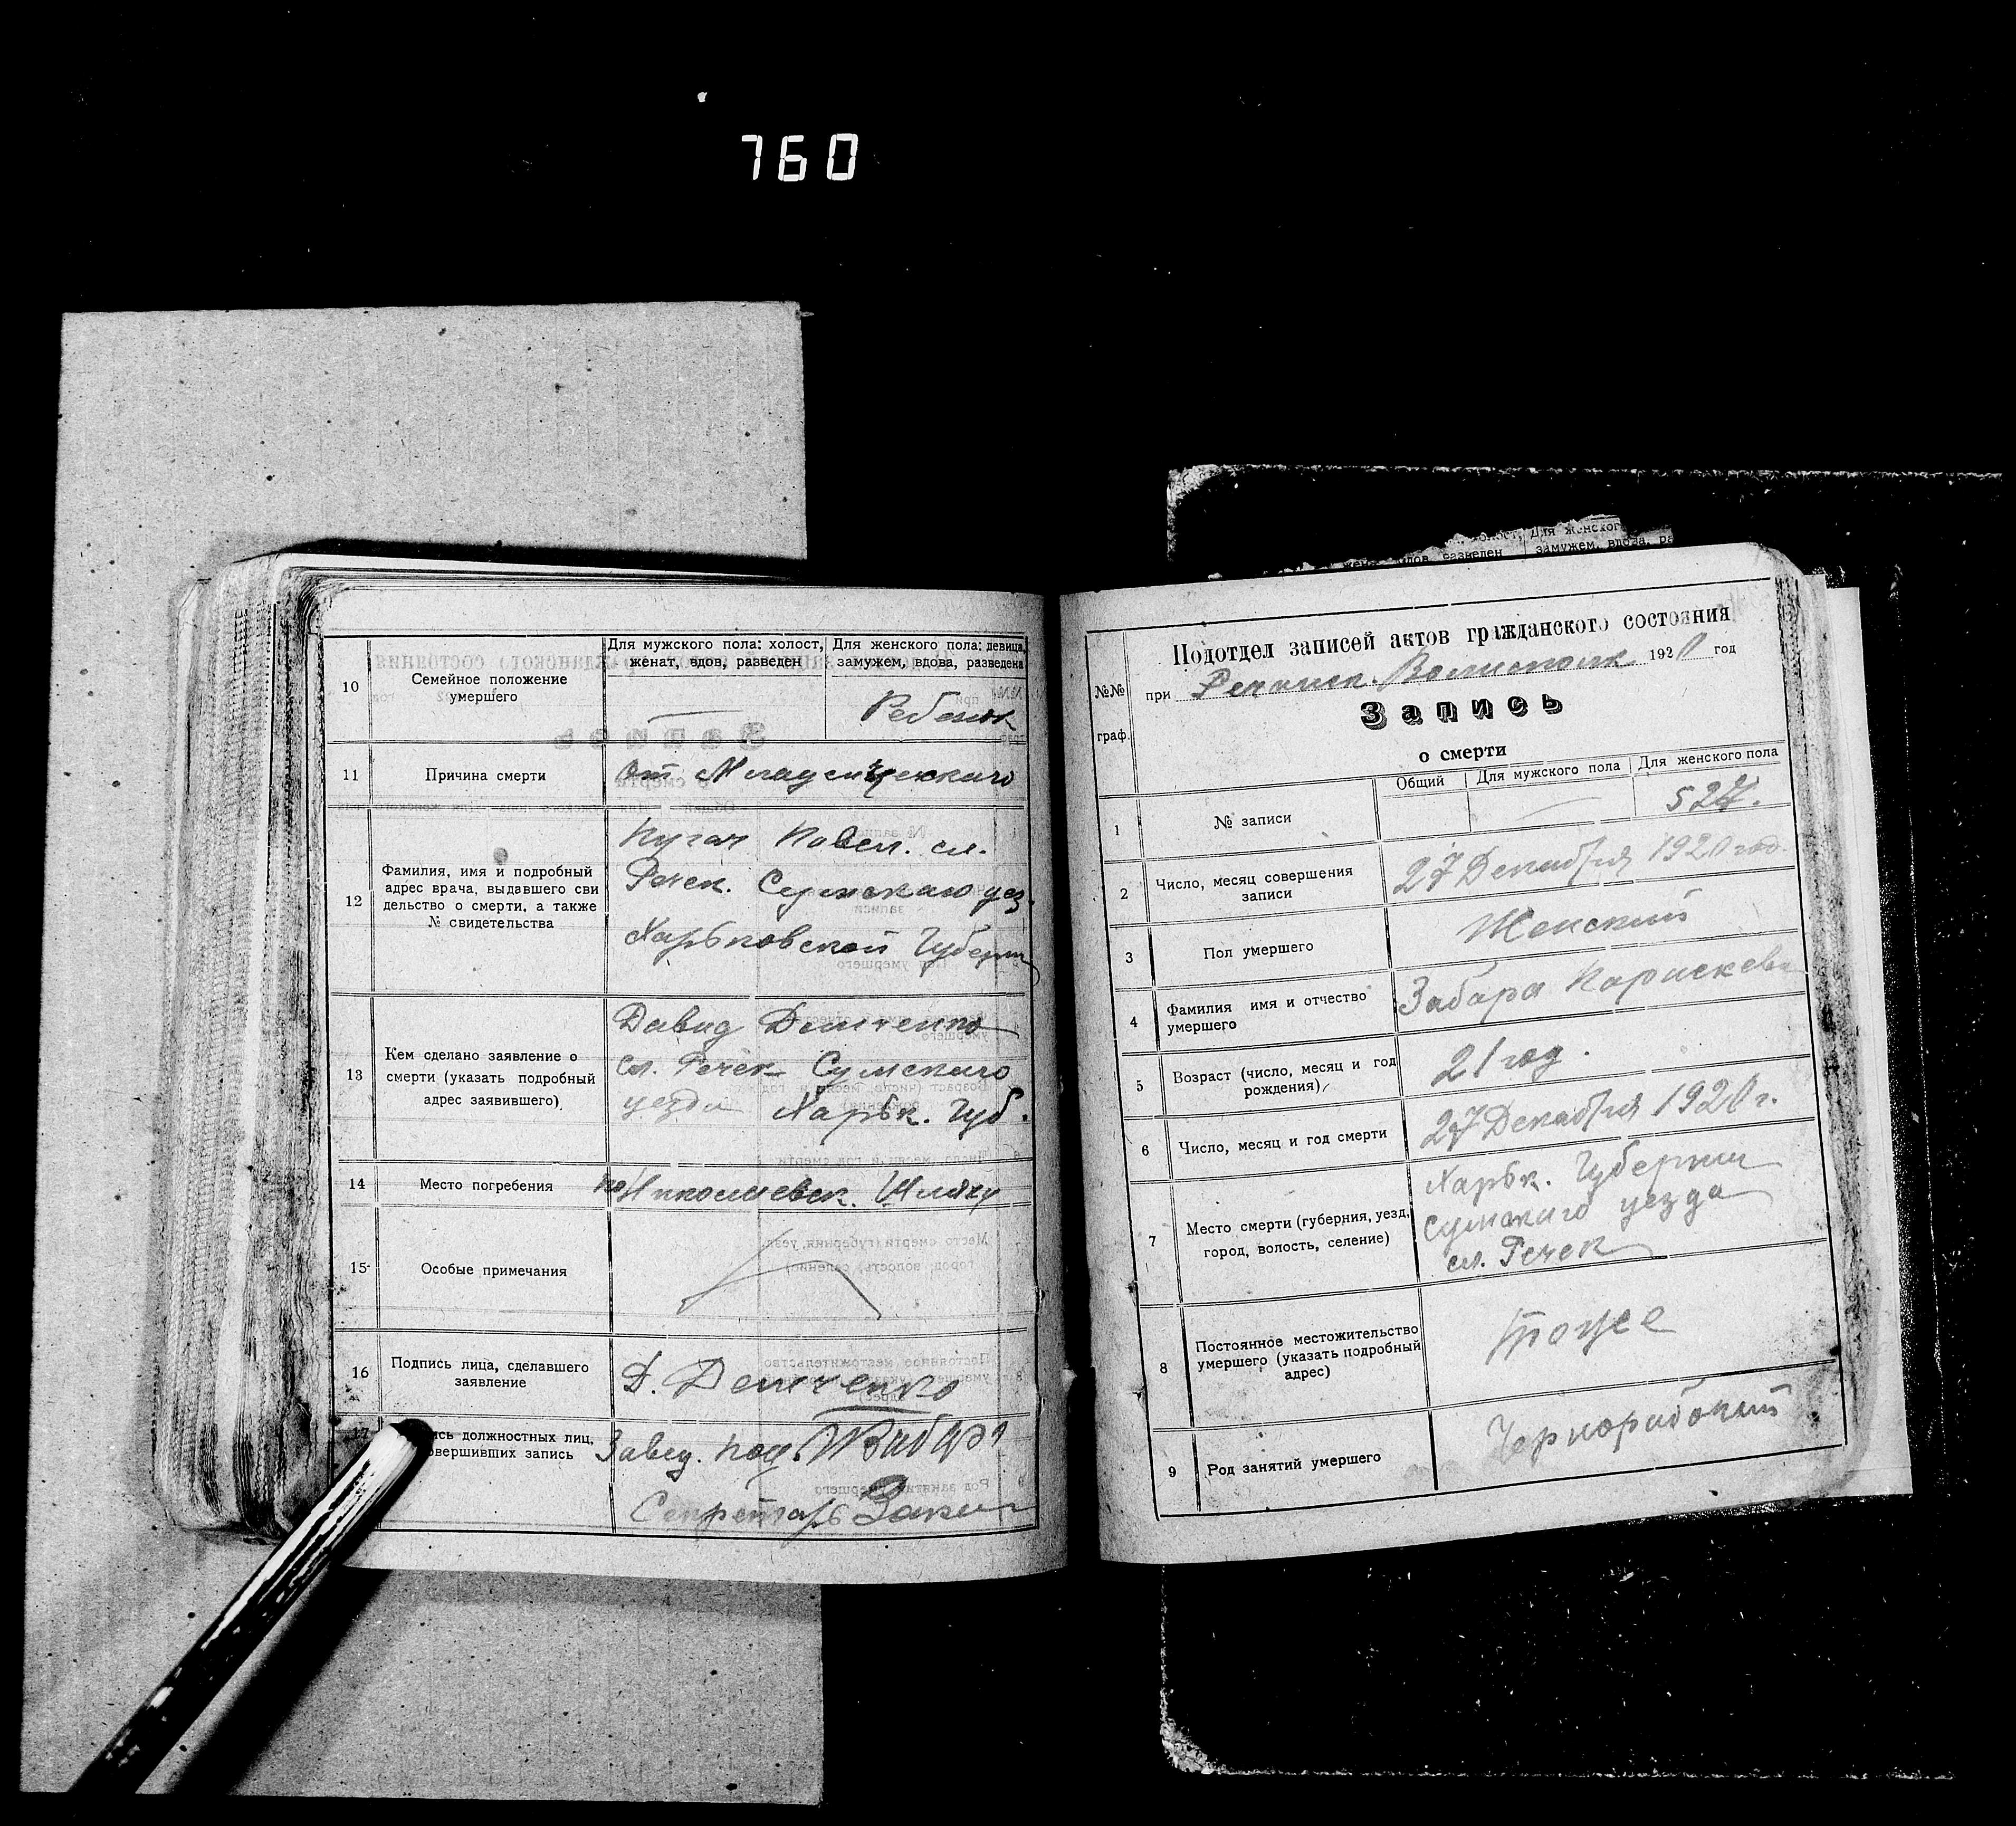 760
10
Семейное положение
умершего
Для мужского пола: холост,
женат, вдов, разведен
Для женского пола: девица,
замужем, вдова, разведена
Ребенок
11
Причина смерти
От Младенческаго
12
Фамилия, имя и подробный
адрес врача, выдавшего сви
дельство о смерти, а также
№ свидетельства
Пугач Павел. сл.
Речек. Сумскаго уез.
Харьковской Губерни
13
Кем сделано заявление о
смерти (указать подробный
адрес заявившего)
Давид Демченко
сл. Речек Сумскаго
уезда Харьк. Губ.
14
Место погребения
по Николаевск. Шляху
15
Особые примечания
16
Подпись лица, сделавшего
заявление
Д. Демченко
17
сь должностных лиц,
овершивших запись
Завед. под.
Секретарь
холост, Для женского
жен вдов, разведен замужем, вдова, ра
№№
граф.
Подотдел записей актов гражданского состояния
при Речанск. Волисполк 1920 год
Запись
о смерти
Общий Для мужского пола Для женского пола
1
№ записи
2
Число, месяц совершения
записи
27 Декабря 1920 год.
3
Пол умершего
Женский
4
Фамилия имя и отчество
умершего
Забара Параскева
5
Возраст (число, месяц и год
рождения)
21 год.
6
Число, месяц и год смерти
27 Декабря 1920 г.
7
Место смерти (губерния, уезд,
город, волость, селение)
Харьк. Губернии
Сумскаго уезда
сл. Речек
8
Постоянное местожительство
умершего (указать подробный
адрес)
тоже
9
Род занятий умершего
Чернорабочий